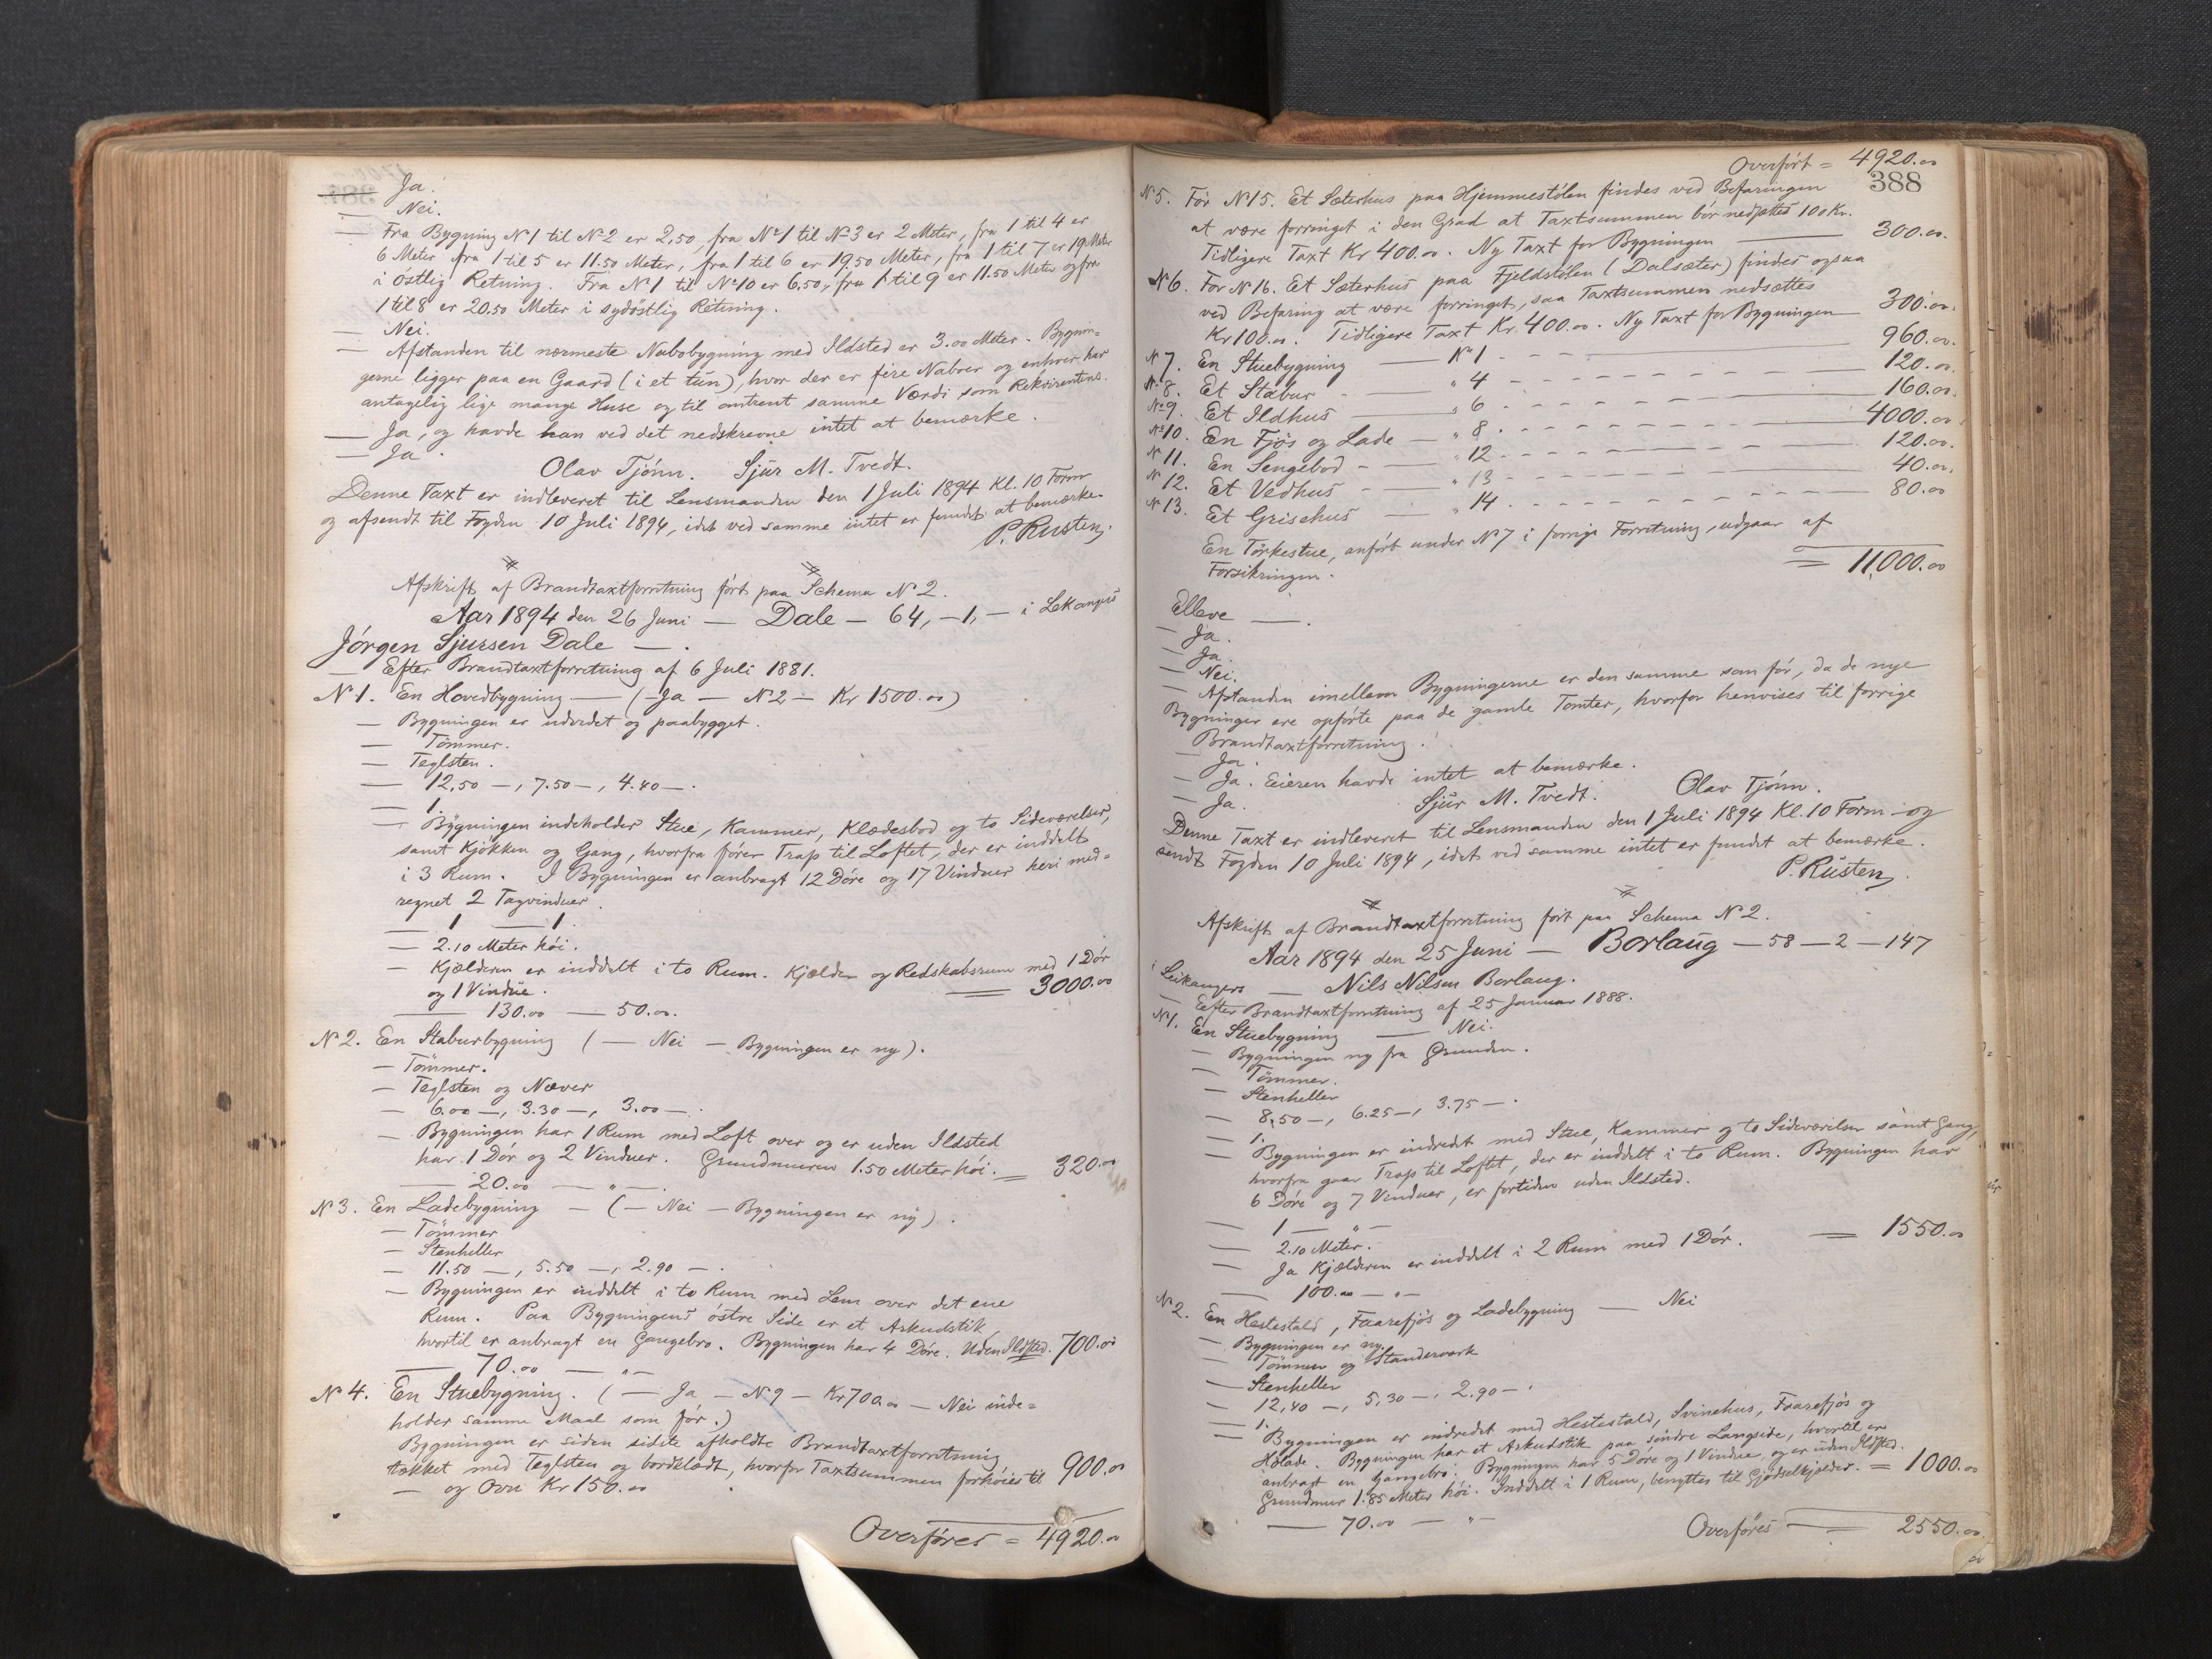 — Ja.
— Nei.
— Fra Bygning N 1 til N 2 er 2,50, fra N 1 til N 3 er 2 Meter, fra 1 til 4 er
6 Meter fra 1 til 5 er 11.50 Meter, fra 1 til 6 er 19,50 Meter, fra 1 til 7 er 19 Meter
i östlig Retning. Fra N 1 til N 10 er 6,50, fra 1 til 9 er 11.50 Meter og fra
1 til 8 er 20.50 Meter i sydöstlig Retning.
— Nei.
— Afstanden til nærmeste Nabobygning med Ildsted er 3.00 Meter. Bygnin=
gerne ligger paa en Gaard (i et tún), hvor der er fire Naboer og enhver har
antagelig lige mange Huse og til omtrent samme Værdi som Rekvirentens.
— Ja, og havde han ved det nedskrevne intet at bemærke.
— Ja.
Olav Tjönn. Sjur M. Tvedt.
Denne Taxt er indleveret til Lensmanden den 1 Juli 1894 Kl. 10 Form
og afsendt til Fogden 10 Juli 1894, idet ved samme intet er fundet at bemærke.
P. Rusten,
Afskrift af Brandtaxtforretning fört paa Schema N 2.
Aar 1894 den 26 Juni — Dale — 64, — 1, — i Lekangers
Jörgen Sjursen Dale — .
— Efter Brandtaxtforretning af 6 Juli 1881.
N 1. En Hovedbygning — (— Ja — N 2 — Kr 1500.00)
— Bygningen er udvidet og paabygget.
— Tömmer.
— Teglsten.
— 12,50 —, 7.50 —, 4.40 — .
— 1.
— Bygningen indeholder Stue, Kammer, Klædesbod og to Sideværelser,
samt Kjökken og Gang, hvorfra förer Trap til Loftet, der er inddelt
i 3 Rum. I Bygningen er anbragt 12 Döre og 17 Vinduer heri med=
regnet 2 Tagvinduer.
— 1 — 1.
— 2.10 Meter höi.
— Kjælderen er inddelt i to Rum. Kjælder og Redskabsrum med 1 Dör
og 1 Vindue. = 3000.00
— 130.00 — 50.00.
N 2. En Staburbygning (— Nei — Bygningen er ny).
— Tömmer.
— Teglsten og Næver
— 6.00 —, 3.30 —, 3.00 — .
— Bygningen har 1 Rum med Loft over og er uden Ildsted
har 1 Dör og 2 Vinduer. Grundmuren 1.50 Meter höi. = 320.00
— 20.00 — " — .
N 3. En Ladebygning — (— Nei — Bygningen er ny).
— Tömmer
— Stenheller
— 11.50 —, 5.50 —, 2.90 — .
— Bygningen er inddelt i to Rum med Lem over det ene
Rum. Paa Bygningens östre Side er et Arkudstik,
hvortil er anbragt en Gangebro. Bygningen har 4 Döre. Uden Ildsted. 700.00
— 70.00 — " —
N 4. En Stuebygning. (— Ja — N 9 — Kr 700.00 — Nei inde=
holder samme Maal som för.)
Bygningen er siden sidste afholdte Brandtaxtforretning
tækket med Teglsten og bordklædt, hvorfor Taxtsummen forhöies til 900.00
— og Ovn Kr 150.00
Overföres = 4920.00
Overfört = 4920.00
388
N 5. För N 15. Et Sæterhus paa Hjemmestölen findes ved Befaringen
at være forringet i den Grad at Taxtsummen bör nedsættes 100 Kr.
Tidligere Taxt Kr 400.00. Ny Taxt for Bygningen — 300.00.
N 6. För N 16. Et Sæterhus paa Fjeldstölen (Dalsæter) findes ogsaa
ved Befaring at være forringet, saa Taxtsummen nedsættes
Kr 100.00. Tidligere Taxt Kr 400.00. Ny Taxt for Bygningen — 300.00.
N 7. En Stuebygning — N 1 - - — 960.00.
N 8. Et Stabur - — " 4 - - — 120.00.
N 9. Et Ildhus — " 6 - - — 160.00.
N 10. En Fjös og Lade — " 8 - - — 4000.00.
N 11. En Sengebod - — " 12 - - — 120.00.
N 12. Et Vedhus - — " 13 - - — 40.00.
N 13. Et Grisehus — " 14 - - — 80.00
En Törkestue, anfört under N 7 i forrige Forretning, udgaar af
Forsikringen. = 11,000.00
Elleve — .
— Ja.
— Ja.
— Nei.
— Afstanden imellem Bygningerne er den samme som för, da de nye
Bygninger ere opförte paa de gamle Tomter, hvorfor henvises til forrige
Brandtaxtforretning.
— Ja.
— Ja. Eieren havde intet at bemærke.
— Ja. Sjur M. Tvedt. Olav Tjönn.
Denne Taxt er indleveret til Lensmanden den 1 Juli 1894 Kl. 10 Form og
sendt Fogden 10 Juli 1894, idet ved samme intet er fundet at bemærke.
P. Rusten,
Afskrift af Brandtaxtforretning fört paa Schema N 2.
Aar 1894 den 25 Juni — Borlaug — 58 — 2 — 147
i Leikangers — Nils Nilsen Borlaug.
— Efter Brandtaxtforretning af 25 Januar 1888.
N 1. En Stuebygning — Nei.
— Bygningen ny fra Grunden.
— Tömmer.
— Stenheller
— 8,50 —, 6.25 —, 3.75 — .
— 1.
— Bygningen er indredet med Stue, Kammer og to Sideværelser samt Gang,
hvorfra gaar Trap til Loftet, der er inddelt i to Rum. Bygningen har
6 Döre og 7 Vinduer, er fortiden uden Ildsted.
— 1 — " —
— 2.10 Meter.
— Ja Kjælderen er inddelt i 2 Rum med 1 Dör. = 1550.00
— 100.00 — " —
N 2. En Hestestald, Faarefjös og Ladebygning — Nei
— Bygningen er ny.
— Tömmer og Standerværk
— Stenheller
— 12,40 —, 5,30 —, 2.90 — .
— 1.
— Bygningen er indredet med Hestestald, Svinehus, Faarefjös og
Hölade. Bygningen har et Arkudstik paa söndre Langside, hvortil er
anbragt en Gangebro. Bygningen har 5 Döre og 1 Vindue, og er uden Ildsted.
Grundmur 1.85 Meter höi. Inddelt i 1 Rum, benyttes til Gjödselkjælder. = 1000.00
— 70.00 — " —
Overföres — = 2550.00